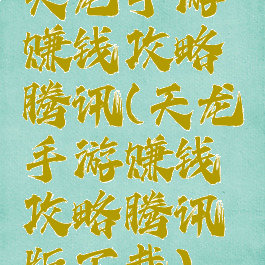 天龙手游
赚钱攻略
腾讯(天龙
手游赚钱
攻略腾讯
版下载)